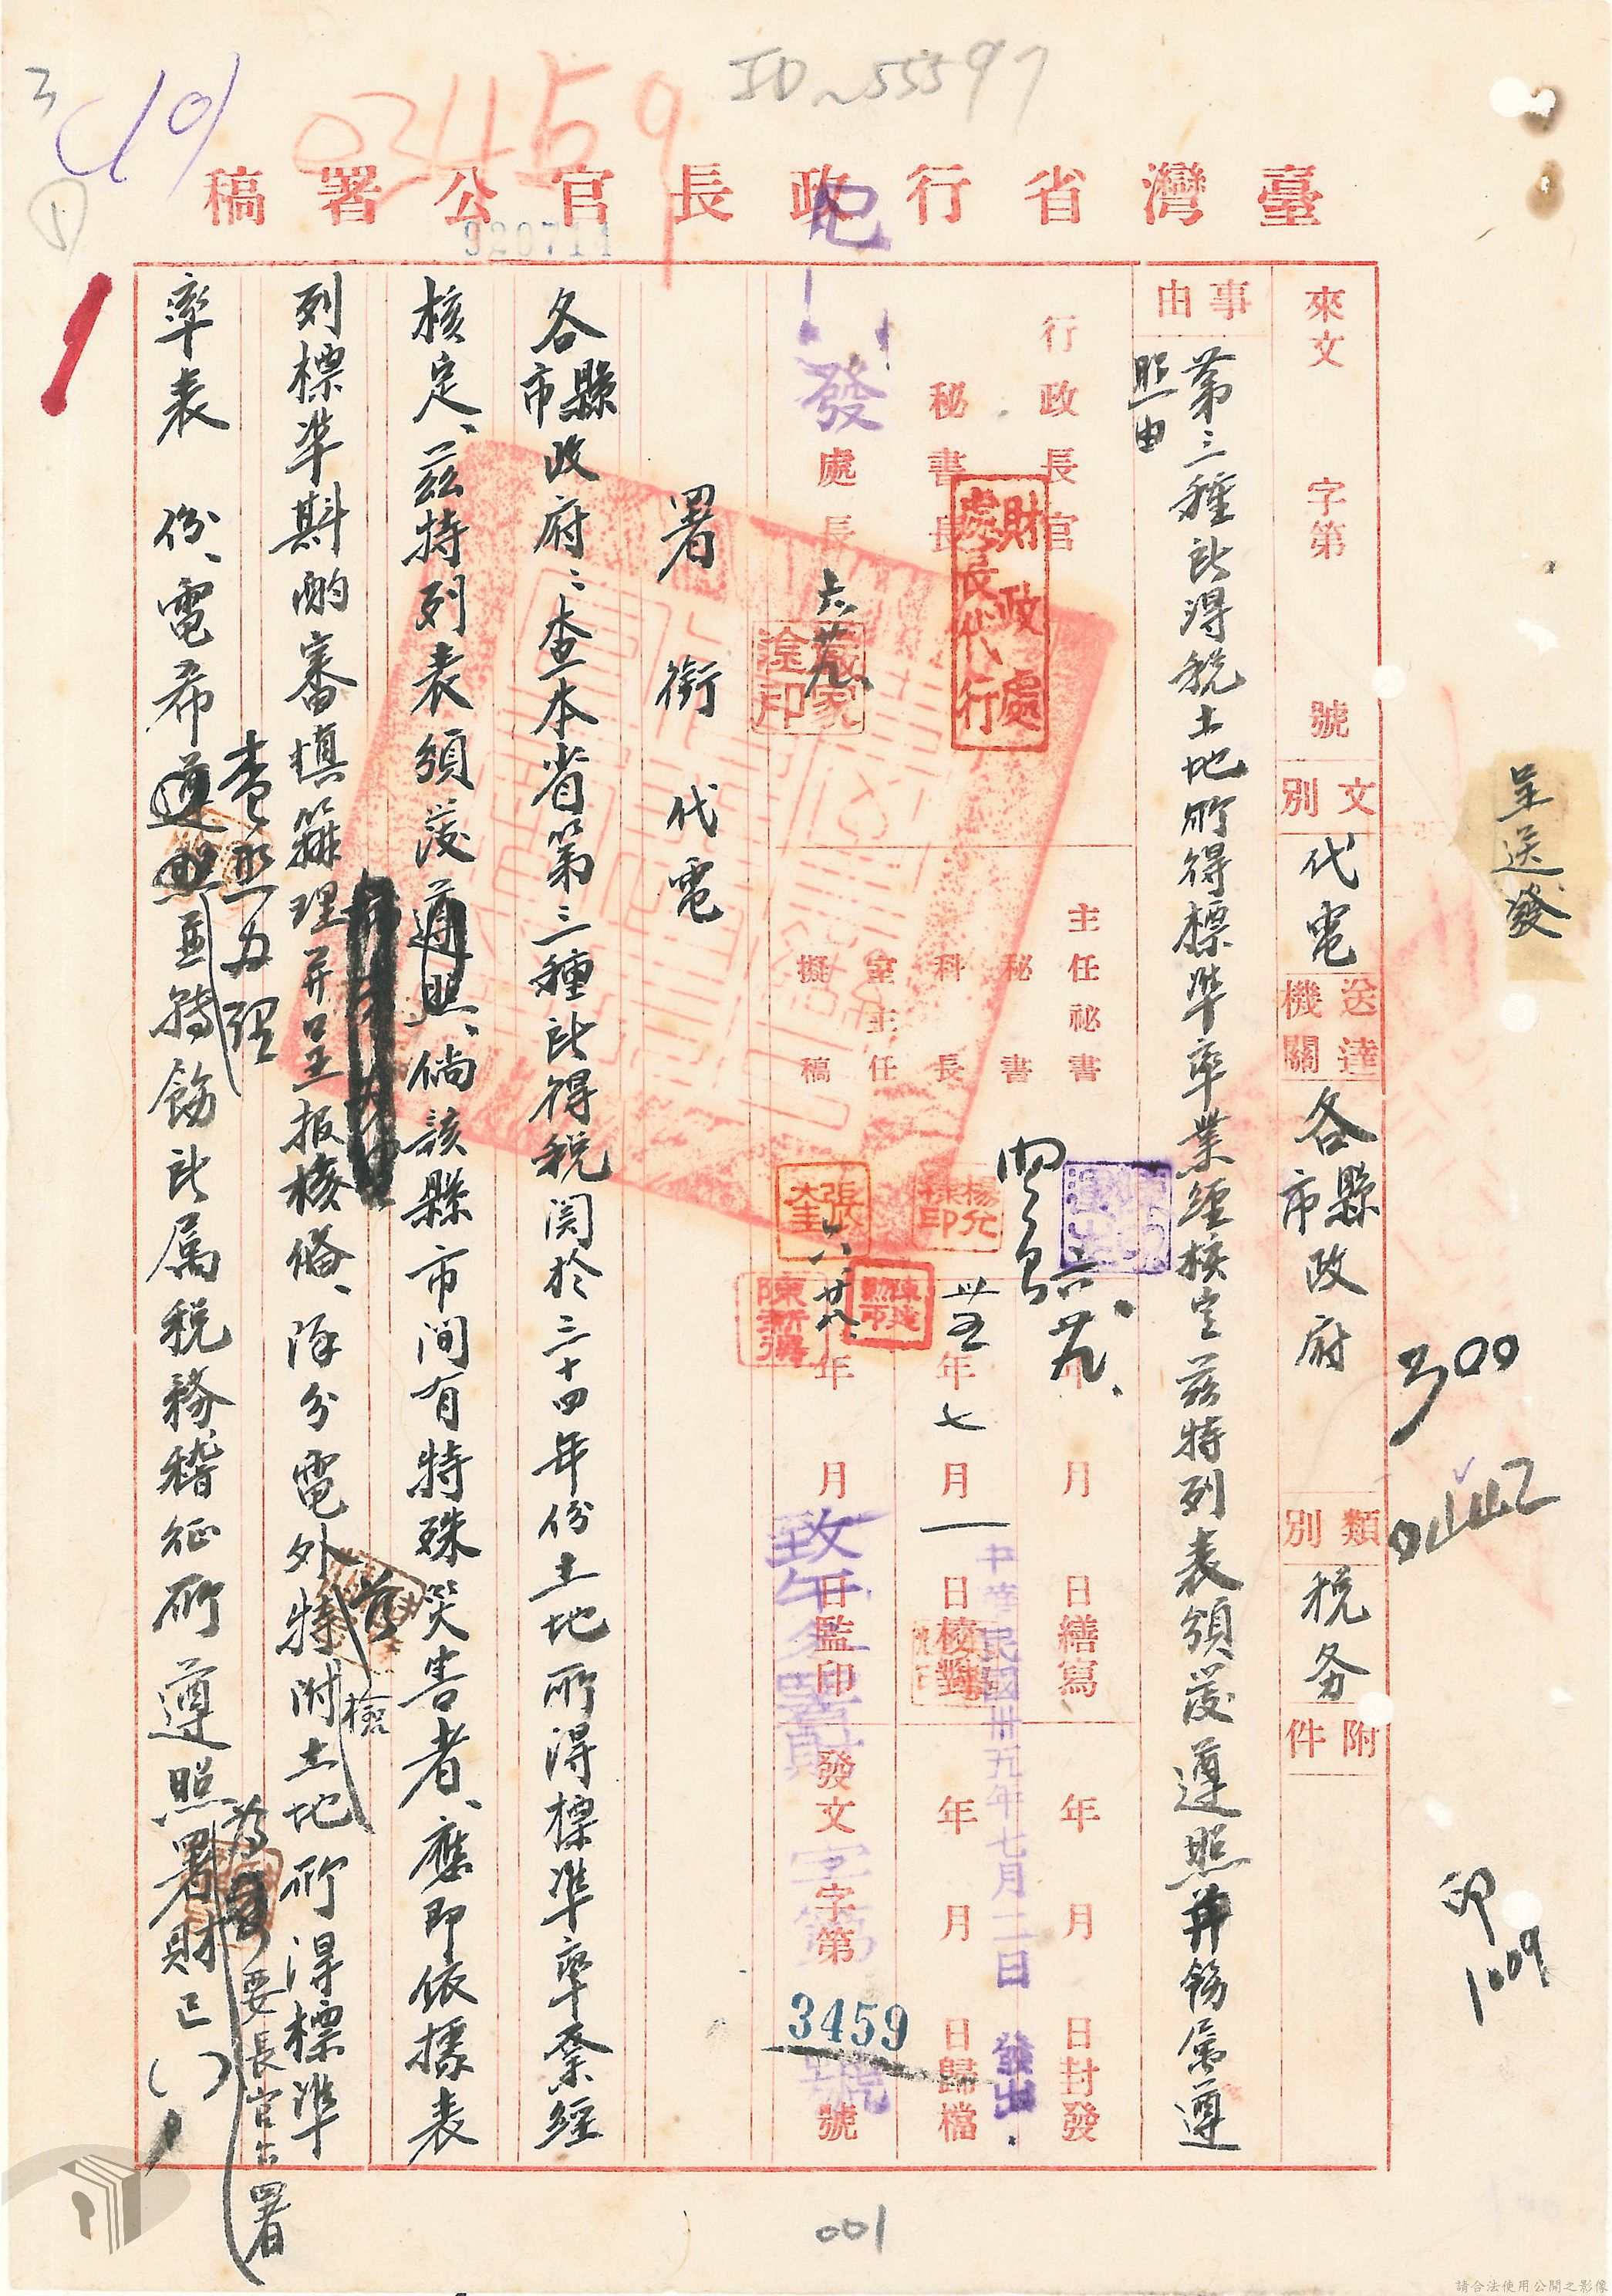 ID~55597
03459
臺灣省行政長官公署稿
920714
來文 字第 號
文別 代電
送達機關 各縣市政府
類別 稅务
附件
事由
第三種所得稅土地所得標準率業經核定茲特列表頒發遵照并飭屬遵
照由
呈送發
300
印
1009
行政長官
財政處
處長代行
秘書長
處長
六、廿九、
已發
主任祕書
秘書
科長
室主任
擬稿
六、廿九、
六、廿八、
年 月 日繕寫
年 月 日封發
卅五年七月一日校對
年 月 日歸檔
年 月 日監印
發文 字第 號
3459
中華民國卅五年七月二日發出
致午冬署財
字第 號
署銜代電
各縣市政府：查本省第三種所得稅関於三十四年份土地所得標準率業經
核定、茲特列表頒發遵照、倘該縣市間有特殊災害者、應即依據表
列標準斟酌審慎辦理并呈报核俻、除分電外特附土地所得標準
檢
率表　份、電希遵照並轉飭所属稅務稽征所遵照署財巳( )
查照办理
為要長官公署
001
請合法使用公開之影像